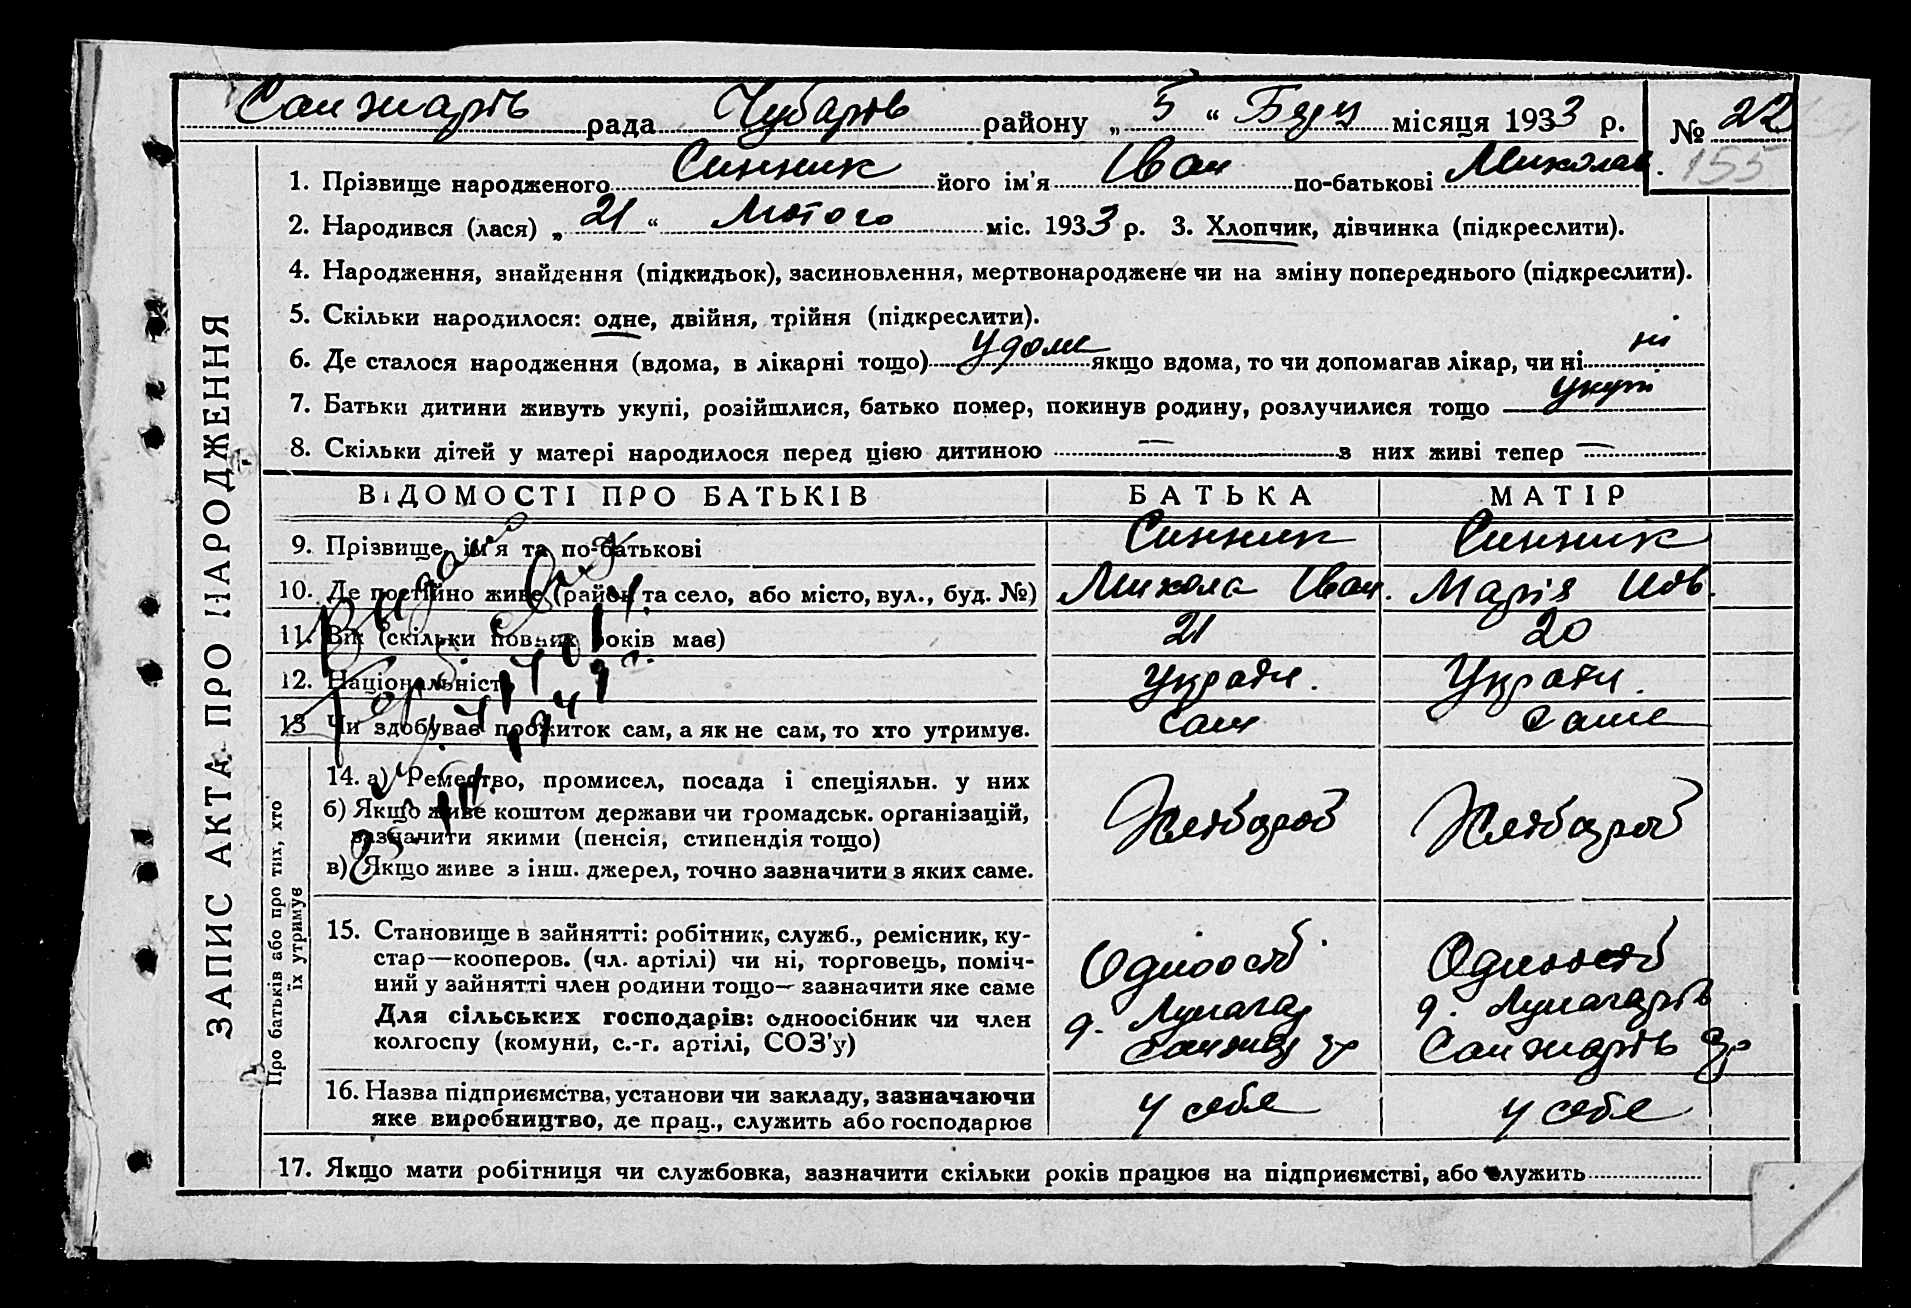 Санжарів рада Чубарів району „ 5 “ Берез місяця 1933 р. № 22
155
1. Прізвище народженого Синник його ім'я Іван по-батькові Миколаев.
2. Народився (лася) „ 21 “ Лютого міс. 1933 р. 3. Хлопчик, дівчинка (підкреслити).
4. Народження, знайдення (підкидьок), засиновлення, мертвонароджене чи на зміну попереднього (підкреслити).
5. Скільки народилося: одне, двійня, трійня (підкреслити).
6. Де сталося народження (вдома, в лікарні тощо) удоме якщо вдома, то чи допомагав лікар, чи ні ні
7. Батьки дитини живуть укупі, розійшлися, батько помер, покинув родину, розлучилися тощо — укупі
8. Скільки дітей у матері народилося перед цією дитиною — з них живі тепер —
ЗАПИС АКТА ПРО НАРОДЖЕННЯ
ВІДОМОСТІ ПРО БАТЬКІВ БАТЬКА МАТІР
9. Прізвище, ім'я та по-батькові Синник Синник
10. Де постійно живе (район та село, або місто, вул., буд. №) Микола Іван. Марія Иов.
11. Вік (скільки повних років має) 21 20
12. Національність Україн. Україн.
13 Чи здобуває прожиток сам, а як не сам, то хто утримує. сам саме
Видано
Про батьків або про тих, хто їх утримує
14. а) Ремество, промисел, посада і спеціяльн. у них
б) Якщо живе коштом держави чи громадськ. організацій,
зазначити якими (пенсія, стипендія тощо) Хлібороб Хлібороб
в) Якщо живе з інш. джерел, точно зазначити з яких саме.
15. Становище в зайнятті: робітник, служб., ремісник, ку-
стар—кооперов. (чл. артілі) чи ні, торговець, поміч- Одноосіб. Одноосіб
ний у зайнятті член родини тощо— зазначити яке саме
Для сільських господарів: одноосібник чи член
колгоспу (комуни, с.-г. артілі, СОЗ'у) Санжарів
16. Назва підприємства, установи чи закладу, зазначаючи у себе у себе
яке виробництво, де прац., служить або господарює
17. Якщо мати робітниця чи службовка, зазначити скільки років працює на підприємстві, або служить